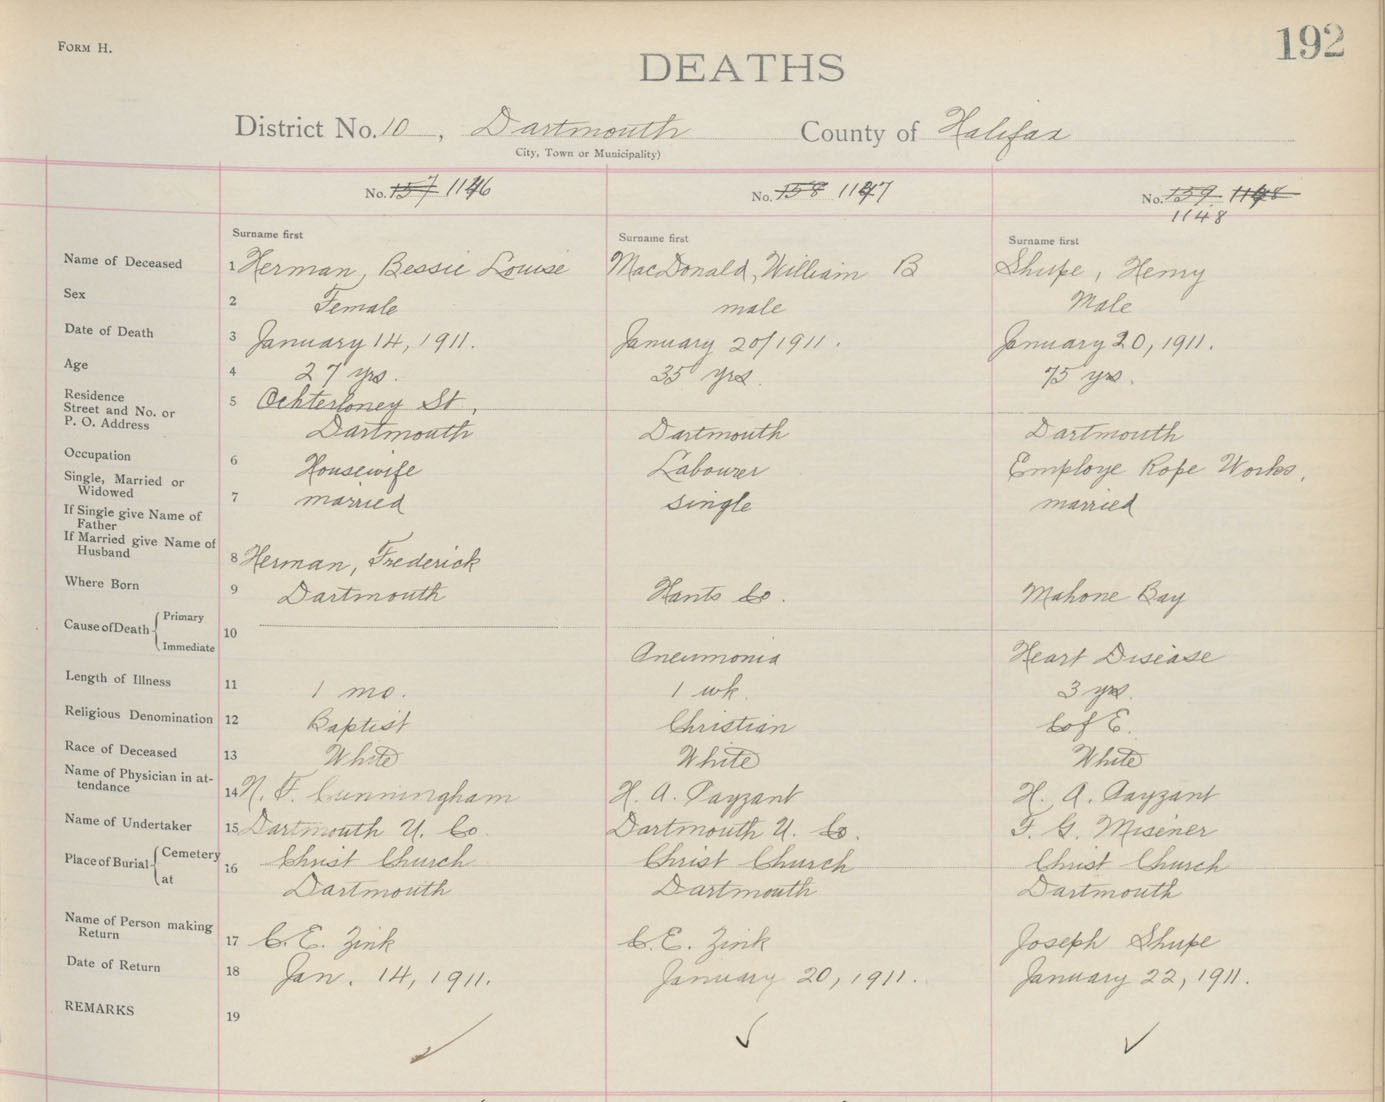 FORM H.
192
DEATHS
District No. 10, Dartmouth County of Halifax
City, Town or Municipality)
No. 157 1146 No. 158 1147 No. 159 1148
1148
Surname first Surname first Surname first
Name of Deceased 1 Herman, Bessie Louise MacDonald, William B Shupe, Henry
Sex 2 Female male Male
Date of Death 3 January 14, 1911. January 20/1911. January 20, 1911.
Age 4 27 yrs. 35 yrs. 75 yrs.
Residence 5 Ochterloney St,
Street and No. or
P. O. Address Dartmouth Dartmouth Dartmouth
Occupation 6 Housewife Labourer Employe Rope Works.
Single, Married or
Widowed 7 married single married
If Single give Name of
Father
If Married give Name of
Husband 8 Herman, Frederick
Where Born 9 Dartmouth Hants Co. Mahone Bay
Cause of Death Primary
10
Immediate Pneumonia Heart Disease
Length of Illness 11 1 mo. 1 wk. 3 yrs.
Religious Denomination 12 Baptist Christian C of E.
Race of Deceased 13 White White White
Name of Physician in at-
tendance 14 N. F. Cunningham H. A. Payzant H. A. Payzant
Name of Undertaker 15 Dartmouth U. Co. Dartmouth U. Co. F. G. Misener
Place of Burial Cemetery 16 Christ Church Christ Church Christ Church
at Dartmouth Dartmouth Dartmouth
Name of Person making
Return 17 C. E. Zink C. E. Zink Joseph Shupe
Date of Return 18 Jan. 14, 1911. January 20, 1911. January 22, 1911.
REMARKS 19